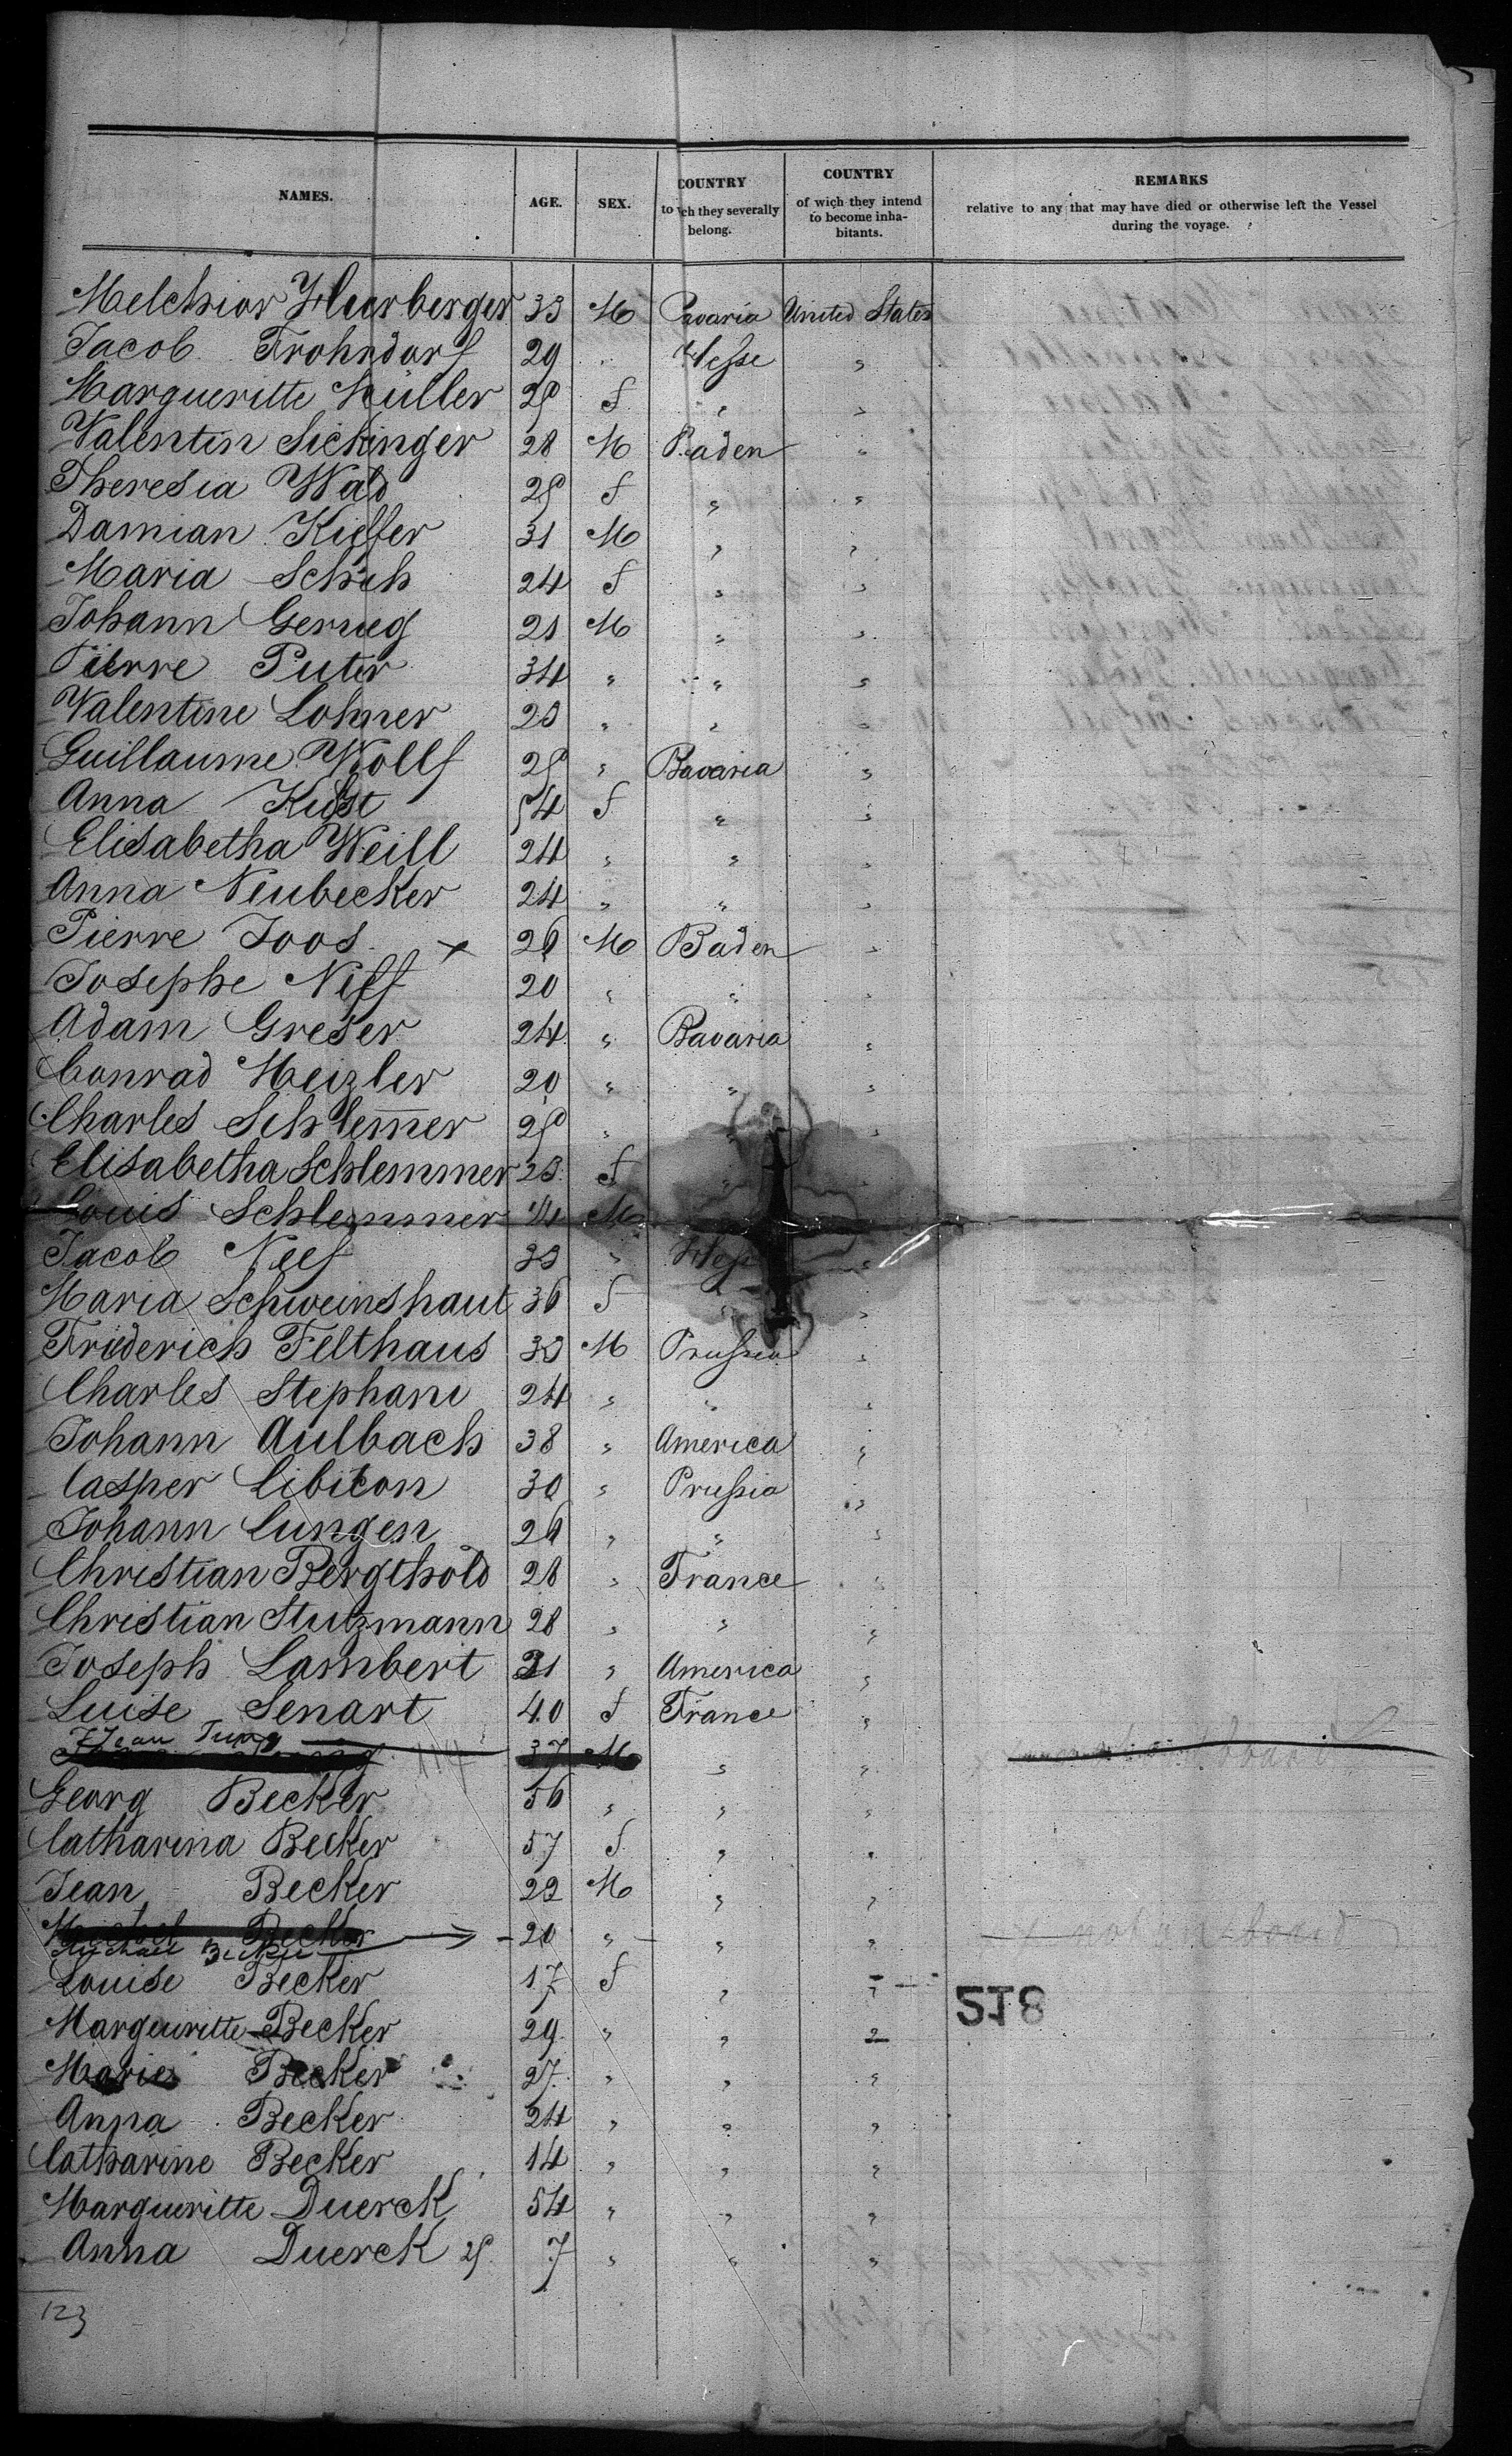 NAMES. AGE. SEX. COUNTRY to ch they severally belong. COUNTRY of wich they intend to become inhabitants. REMARKS relative to any that may have died or otherwise left the Vessel during the voyage.
Melchior Heerberger 33 M Bavaria United States
Jacob Frohndorf 29 " Hesse "
Margueritte Müller 25 f " "
Valentin Sickinger 28 M Baden "
Theresia Wald 25 f " "
Damian Kieffer 31 M " "
Maria Schih 24 f " "
Johann Gerweg 21 M " "
Pierre Puter 34 " " "
Valentine Lohner 23 " " "
Guillaume Wolff 25 " Bavaria "
Anna Kust 54 f " "
Elisabetha Weill 24 " " "
Anna Neubecker 24 " " "
Pierre Joos x 26 M Baden "
Josephe Niff 20 " " "
Adam Greser 24 " Bavaria "
Conrad Meizler 20 " " "
Charles Schlem̅er 25 " " "
Elisabetha Schlemmer 23 f " "
Louis Schlemmer M "
Jacob Neef 33 " Hesse "
Maria Schweinshaut 36 f " "
Friederich Felthaus 33 M Prussia "
Charles Stephani 24 " " "
Johann Aulbach 38 " America "
Casper Cibicon 30 " Prussia "
Johann Cungen 26 " " "
Christian Bergthold 28 " France "
Christian Stutzmann 28 " " "
Joseph Lambert 31 " America "
Luise Senart 40 f France "
Jean Jung
37 M " " board
Georg Becker 56 " " "
Catharina Becker 57 f " "
Jean Becker 22 M " "
Michel Becker 20 " " " x not on board
Michael Becker
Louise Becker 17 f " "
218
Margueritte Becker 29 " " "
Marie Becker 27 " " "
Anna Becker 24 " " "
Catharine Becker 14 " " "
Margueritte Duerck 54 " " "
Anna Duerck 25 7 " " "
123